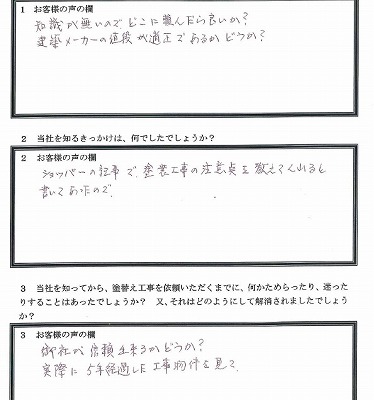 1 お客様の声の欄
知識が無いのでどこに頼んだら良いか?
建築メーカーの値段が適正であるかどうか?
2 当社を知るきっかけは、何でしたでしょうか?
2 お客様の声の欄
ショッパーの記事で、塗装工事の注意点を教えてくれると
書いてあったので、
3 当社を知ってから、塗替え工事を依頼いただくまでに、何かためらったり、迷った
りすることはあったでしょうか? 又、それはどのようにして解消されましたでしょう
か?
3 お客様の声の欄
御社が信頼出来るかどうか?
実際に5年経過した工事物件を見て、